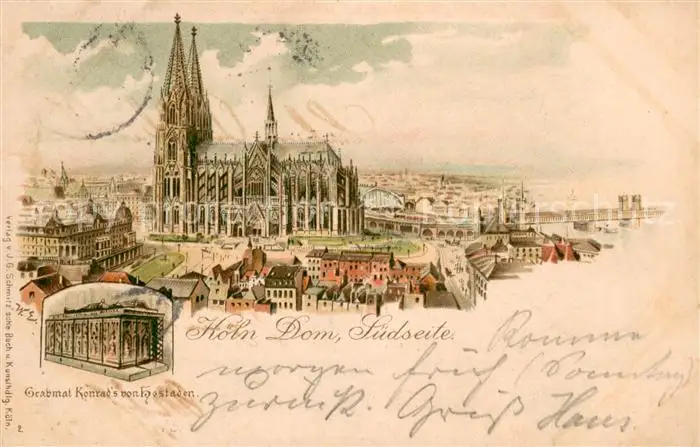 Köln Dom, Südseite.
Grabmal Konrad's von Hostaden.
Verlag v. J. G. Schmitz'sche Buch u. Kunsthdlg. Köln.
2
Komme
morgen früh (Sonntag)
zurück. Gruß Hans.